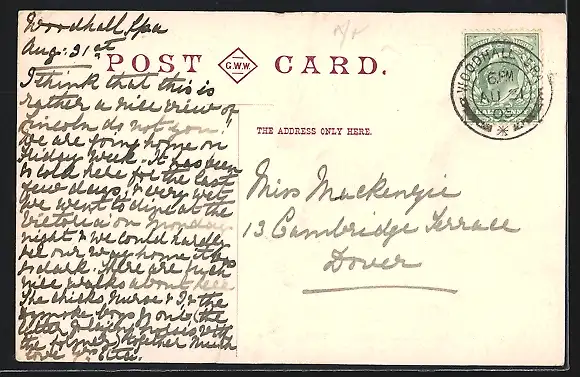 Woodhall Spa
Aug: 31st
POST CARD.
G.W.W.
I think that this is
rather a nice view of
Lincoln do not you?
We are going home on
Friday week. It has been
so cold here for the last
few days, & very wet
We went to dine at the
Victoria on Monday
night & we could hardly
see our way home it was
so dark. There are such
nice walks about here
The chicks, nurse & I & the
boys
the
together Much
love
THE ADDRESS ONLY HERE.
Miss Mackenzie
13 Cambridge Terrace
Dover
WOODHALL-SPA
6 PM
AU 31
05